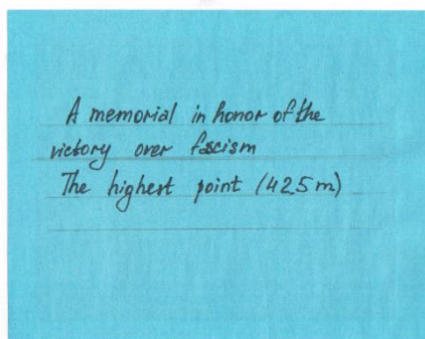 A memorial in honor of the
victory over fascism
The highest point (42.5 m)